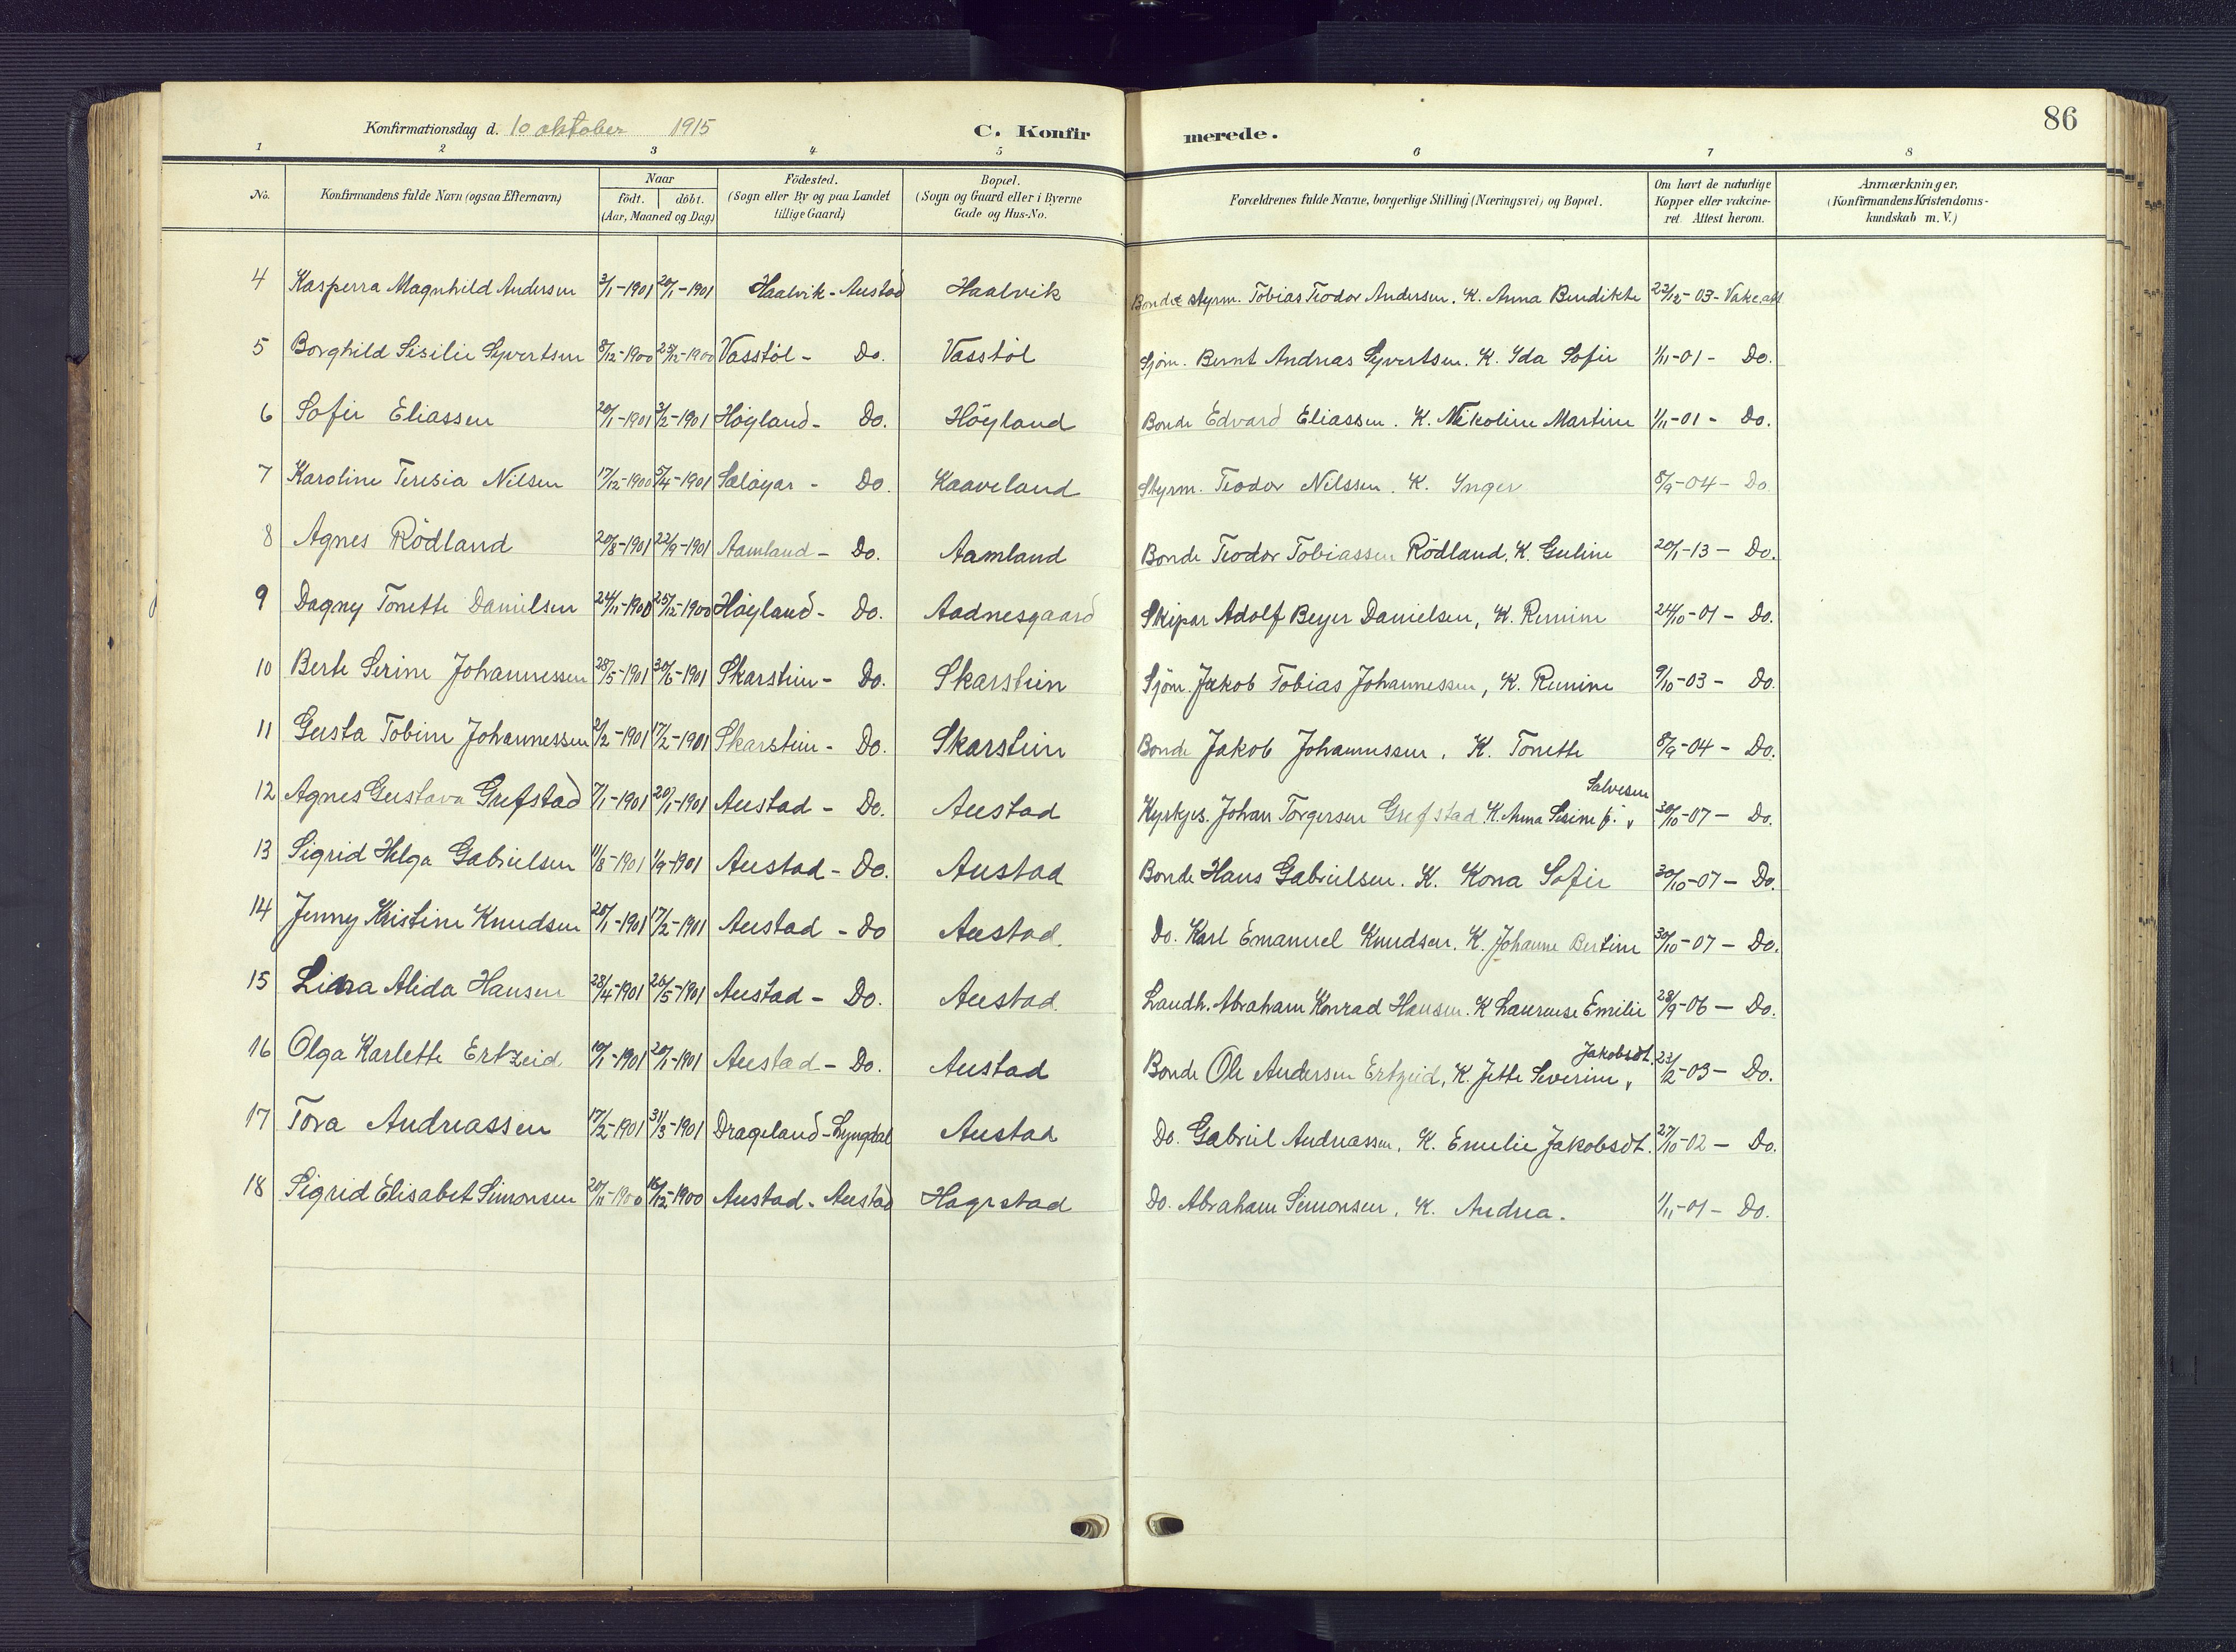 86
Konfirmationsdag d. 10 oktober 1915 C. Konfirmerede.
1 2 3 4 5 6 7 8
No. Konfirmandens fulde Navn (ogsaa Efternavn) Naar födt. döbt. (Aar, Maaned og Dag) Födested. (Sogn eller By og paa Landet tillige Gaard) Bopæl. (Sogn og Gaard eller i Byerne Gade og Hus-No. Forældrenes fulde Navne, borgerlige Stilling (Næringsvei) og Bopæl. Om havt de naturlige Kopper eller vakcineret. Attest herom. Anmærkninger. (Konfirmandens Kristendomskundskab m. V.)
4 Kasperra Magnhild Andersen 3/1-1901 20/1-1901 Haalvik - Austad Haalvik Bonde styrm. Tobias Teodor Andersen. K. Anna Bendikte 22/12-03- Vakc att
5 Borghild Sisilie Syvertsen 8/12-1900 25/12-1900 Vasstöl - Do. Vasstöl Sjöm. Bernt Andreas Syvertsen. K. Ida Sofie 1/11-01 - Do.
6 Sofie Eliassen 20/1-1901 3/2-1901 Höyland - Do. Höyland Bonde Edvard Eliassen. K. Nikoline Martine 1/11-01 - Do.
7 Karoline Teresia Nilsen 17/12-1900 5/4-1901 Salöyar - Do. Kaaveland Styrm. Teodor Nilssen. K. Inger 8/9-04- Do
8 Agnes Rödland 20/8-1901 22/9-1901 Aamland - Do. Aamland Bonde Teodor Tobiassen Rödland. K. Guline 20/1-13 - Do.
9 Dagny Tonette Danielsen 24/11-1900 25/12-1900 Höyland - Do. Aadnesgaard Skipar Adolf Beyer Danielsen, K. Remine 24/10-01 - Do.
10 Berte Serine Johannessen 28/5-1901 30/6-1901 Skarstein - Do. Skarstein Sjöm. Jakob Tobias Johannessen, K. Remine 9/10-03 - Do.
11 Gusta Tobine Johannessen 2/2-1901 17/2-1901 Skarstein - Do. Skarstein Bonde Jakob Johannessen, K. Tonette 8/9-04 - Do.
12 Agnes Gustava Grefstad 7/1-1901 20/1-1901 Austad - Do. Austad Kyrkjes. Johan Torgersen Grefstad K. Anna Sesine f. Salvesen 30/10-07 - Do.
13 Sigrid Helga Gabrielsen 11/8-1901 1/9-1901 Austad - Do. Austad Bonde Hans Gabrielsen. K. Kona Sofie 30/10-07 - Do.
14 Jenny Kristine Knudsen 20/1-1901 17/2-1901 Austad - Do Austad. Do. Karl Emanuel Knudsen. K. Johanne Bertine 30/10-07 - Do.
15 Lina Alida Hansen 28/4-1901 26/5-1901 Austad - Do. Austad. Landh. Abraham Konrad Hansen. K Laurense Emilie 28/9-06 - Do.
16 Olga Karlette Ertzeid 10/1-1901 20/1-1901 Austad - Do. Austad Bonde Ole Andersen Ertzeid, K. Jette Severine Jakobsdt. 23/2-03 - Do.
17 Tora Andreassen 17/2-1901 31/3-1901 Drageland - Lyngdal Austad Do. Gabriel Andreassen, K. Emelie Jakobsdt. 27/10-02 - Do.
18 Sigrid Elisabet Simonsen 20/11-1900 16/12-1900 Austad - Austad Hagestad Do. Abraham Simonsen, K. Andrea. 1/11-01 - Do.